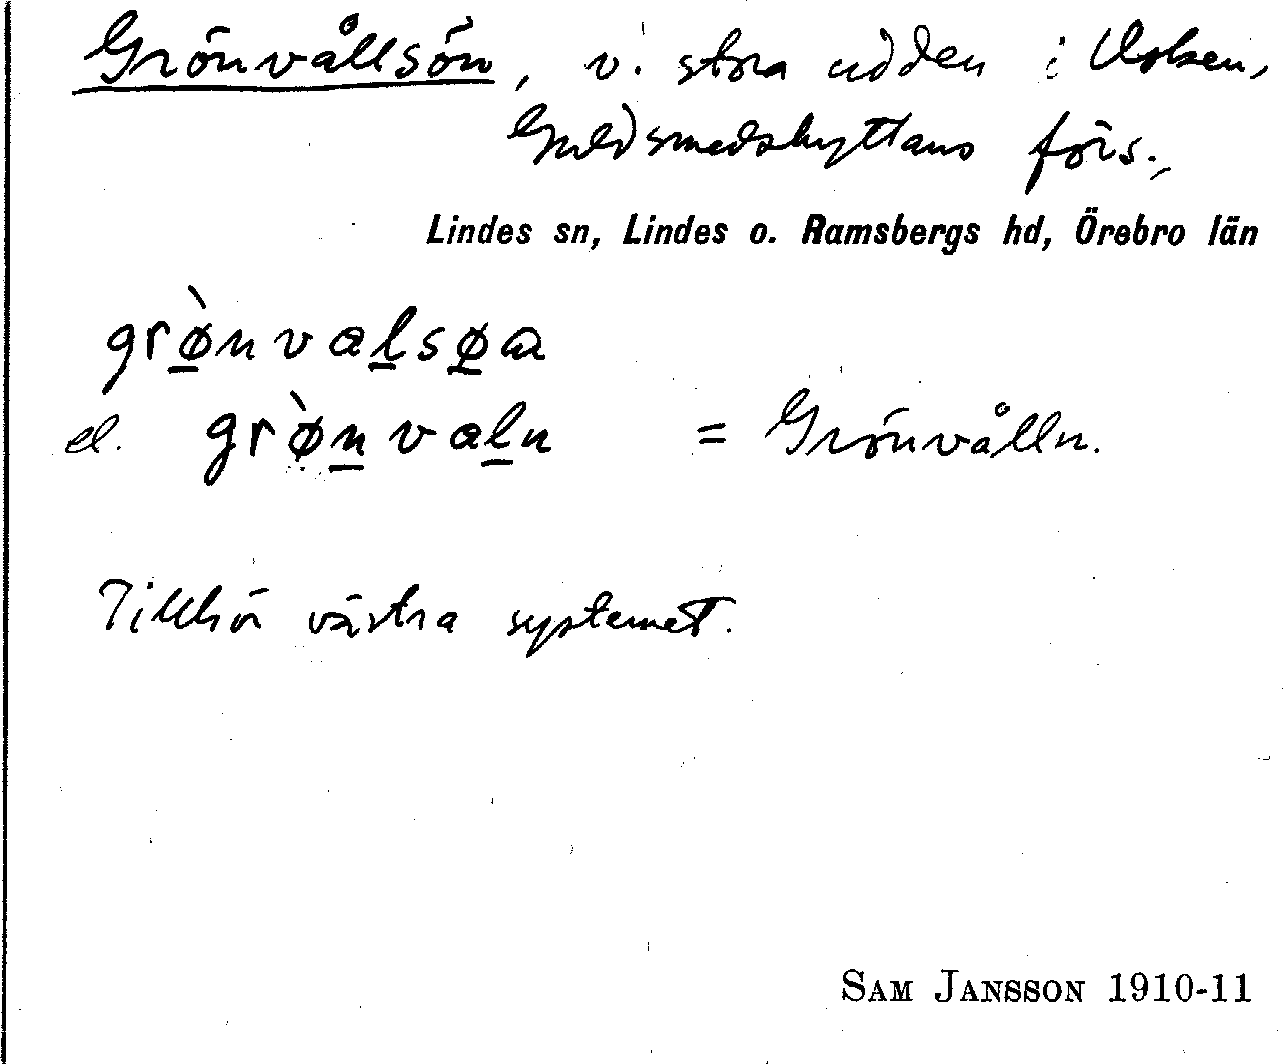 Grönvållsön, v. stora udden i Usken,
Guldsmedshyttans förs.,
Lindes sn, Lindes o. Ramsbergs hd, Örebro län
grø̀nvalsøa
el. grø̀nvaln = Grönvålln.
Tillhör västra systemet.
SAM JANSSON 1910-11